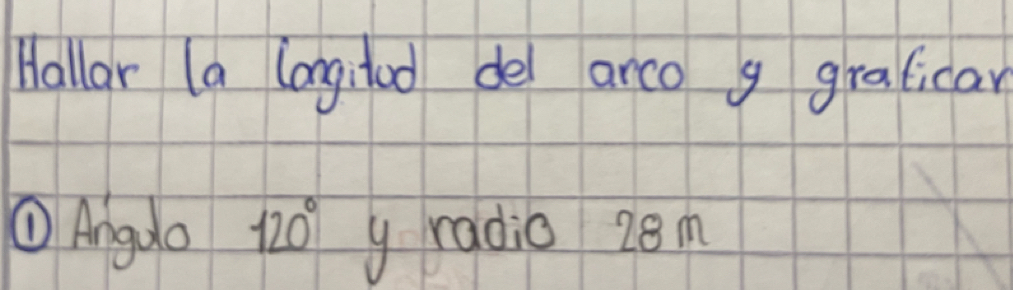 Hallar la longitud del arco y graficar
① Ángulo 120° y radio 28 m